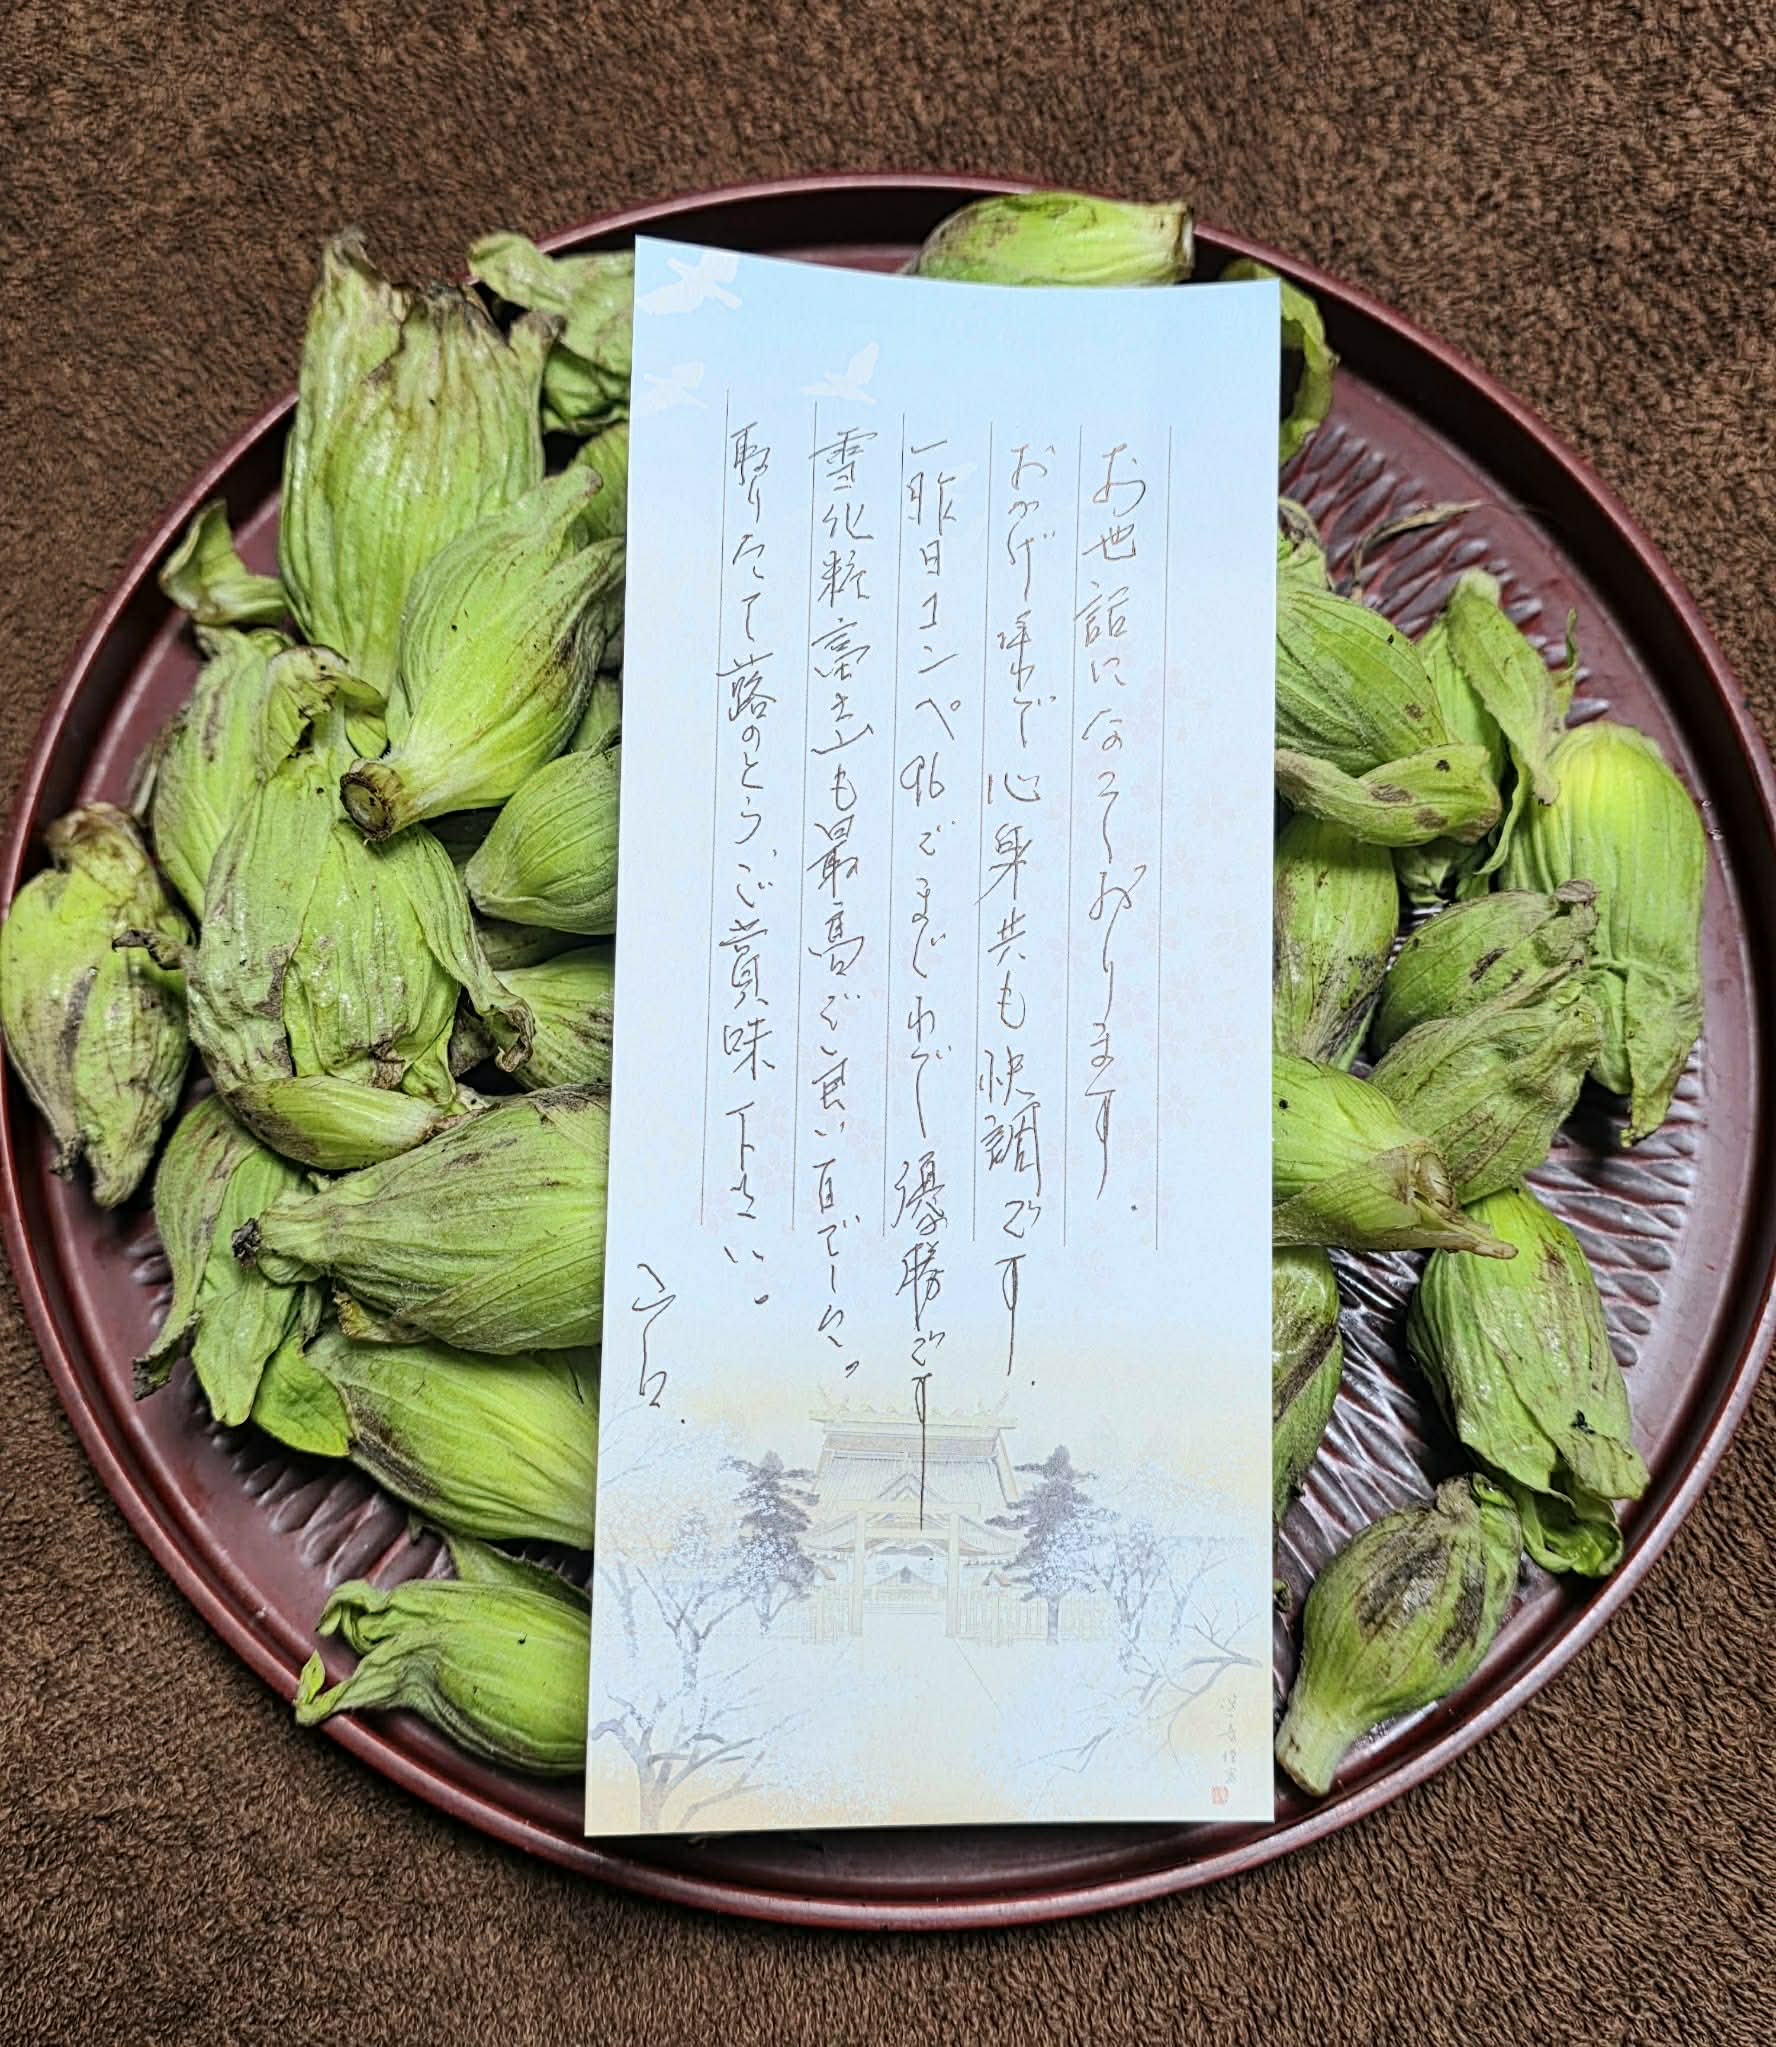 お世話になっております.
おかげ様で心身共も快調です.
一昨日コンペ96でまぐれで優勝です
雪化粧富士山も最高で良い日でした。
取りたて蕗のとうご賞味下さい。
山口.